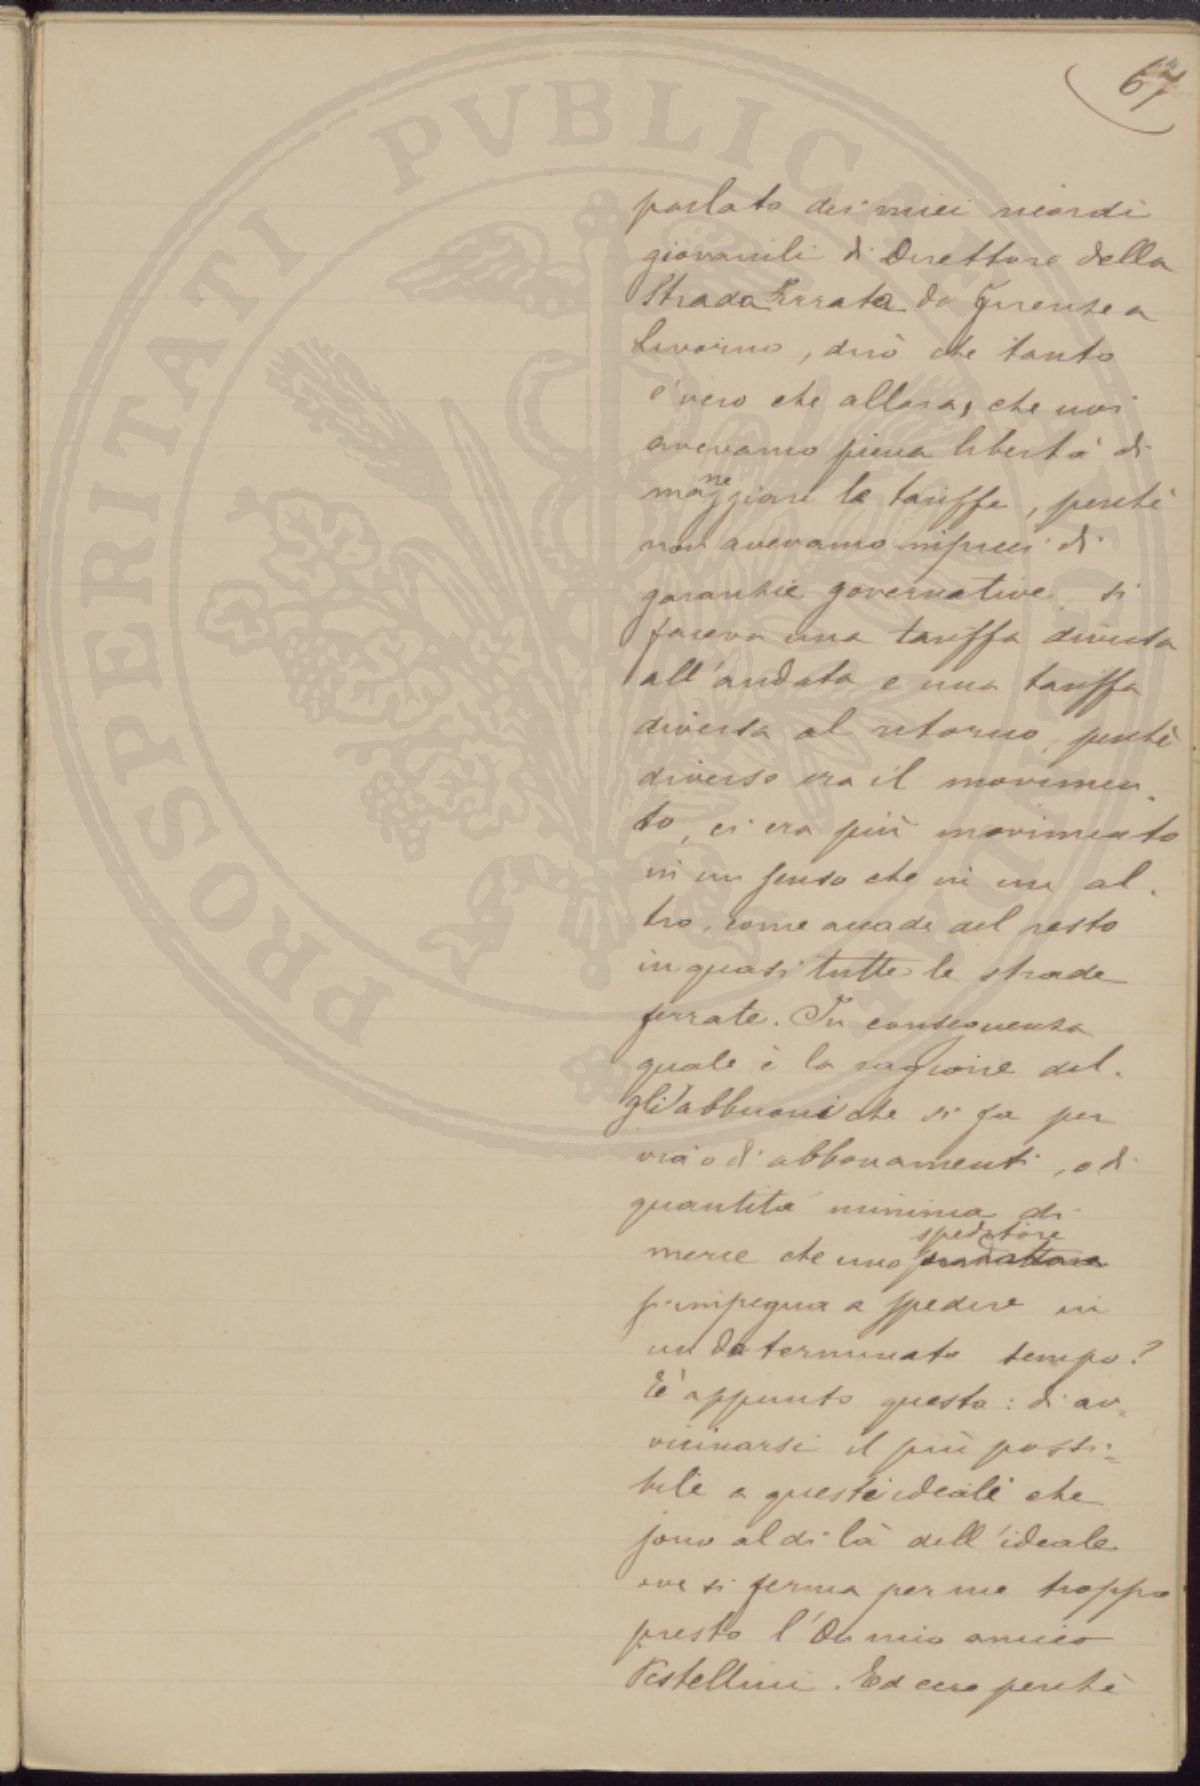 67
parlato dei miei ricordi
giovanili di Direttore della
Strada Ferrata da Firenze a
Livorno, dirò che tanto
è vero che allora, che noi
avevamo piena libertà di
maneggiare le tariffe, perchè
non avevamo di
garanzie governative si
faceva una tariffa diversa
all'andata e una tariffa
diversa al ritorno, perchè
diverso era il movimen-
to, ci era più movimento
in un senso che in un al-
tro, come accade del resto
in quasi tutte le strade
ferrate. In conseguenza
quale è la ragione del-
gli abbuoni che si fa per
via o di abbonamenti, o di
quantità minima di
merce che uno speditore
s'impegna a spedire in
un determinato tempo?
È appunto questa: di av-
vicinarsi il più possi-
bile a questi ideali che
sono al di là dell'ideale
ove si ferma per me troppo
presto l'On mio amico
Pestellini. Ed ecco perchè
PROSPERITATI PVBLICAE